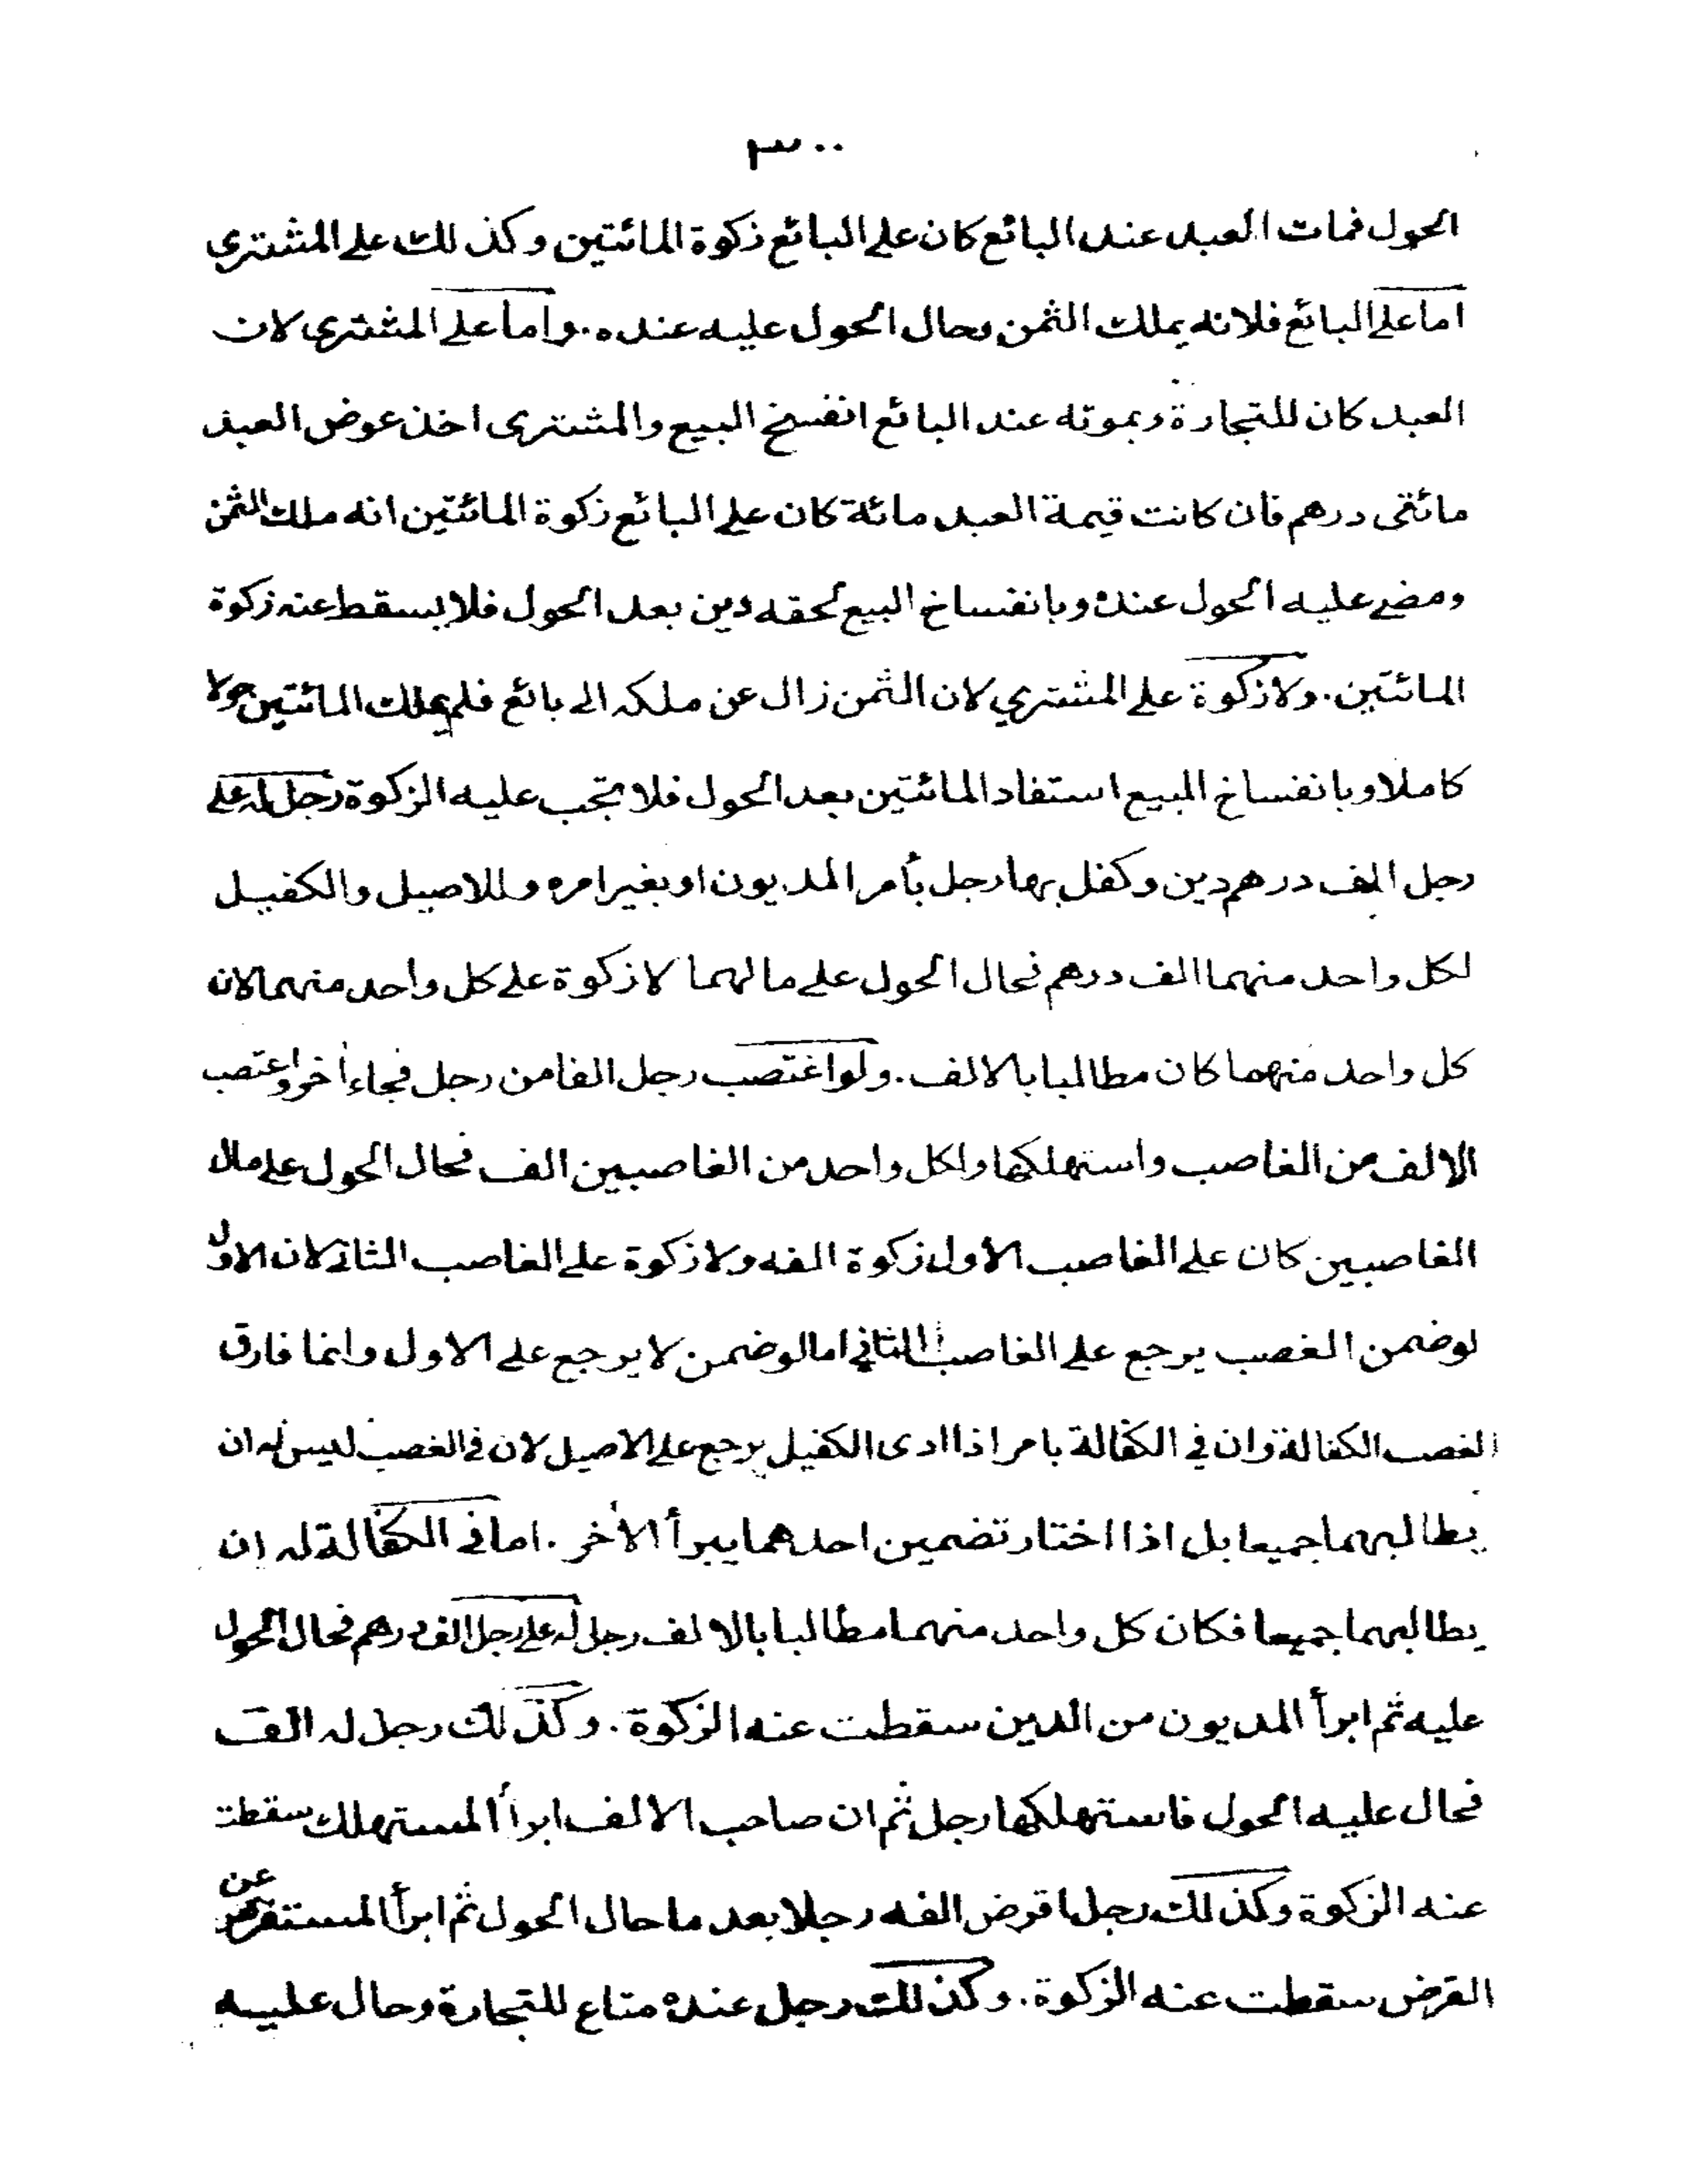 ٣٠٠
الحول فمات العبد عند البائع كان على البائع زكوة المائتين وكذلك على المشتري
اما على البائع فلانه يملك الثمن وحال الحول عليه عنده. واما على المشترى لان
العبد كان للتجارة وبموته عند البائع انفسخ البيع والمشترى اخذ عوض العبد
مائتى درهم فان كانت قيمة العبد مائة كان على البائع زكوة المائتين انه ملك الثمن
ومضى عليه الحول عنده وبانفساخ البيع لحقه دين بعد الحول فلا يسقط عنه زكوة
المائتين. ولا زكوة على المشتري لان الثمن زال عن ملكه الى بائع فلم يملك المائتين حولا
كاملا وبانفساخ المبيع استفاد المائتين بعد الحول فلا تجب عليه الزكوة رجل له على
رجل الف درهم دين وكفل بها رجل بأمر المديون او بغير امره وللاصيل والكفيل
لكل واحد منهما الف درهم فحال الحول على مالهما لا زكوة على كل واحد منهما لان
كل واحد منهما كان مطالبا بالالف. ولو اغتصب رجل الفا من رجل فجاء أخر واغتصب
الالف من الغاصب واستهلكها ولكل واحد من الغاصبين الف فحال الحول على مال
الغاصبين كان على الغاصب الأول زكوة الفه ولا زكوة على الغاصب الثانى لان الاول
لو ضمن الغصب يرجع على الغاصب الثاني اما لو ضمن لا يرجع على الاول وانما فارق
الغصب الكفالة وان في الكفالة بامر اذا ادى الكفيل يرجع على الاصيل لان فى الغصب ليس له ان
يطالبهما جميعا بل اذا اختار تضمين احدهما يبرأ الأخر. اما فى الكفالة له ان
يطالبهما جميعا فكان كل واحد منهما مطالبا بالالف رجل له على رجل الف درهم فحال الحول
عليه ثم ابرأ المديون من الدين سقطت عنه الزكوة. وكذلك رجل له الف
فحال عليه الحول فاستهلكها رجل ثم ان صاحب الالف ابرأ المستهلك سقطت
عنه الزكوة وكذلك رجل اقرض الفه رجلا بعد ما حال الحول ثم ابرأ المستقرض عن
القرض سقطت عنه الزكوة. وكذلك رجل عنده متاع للتجارة وحال عليه